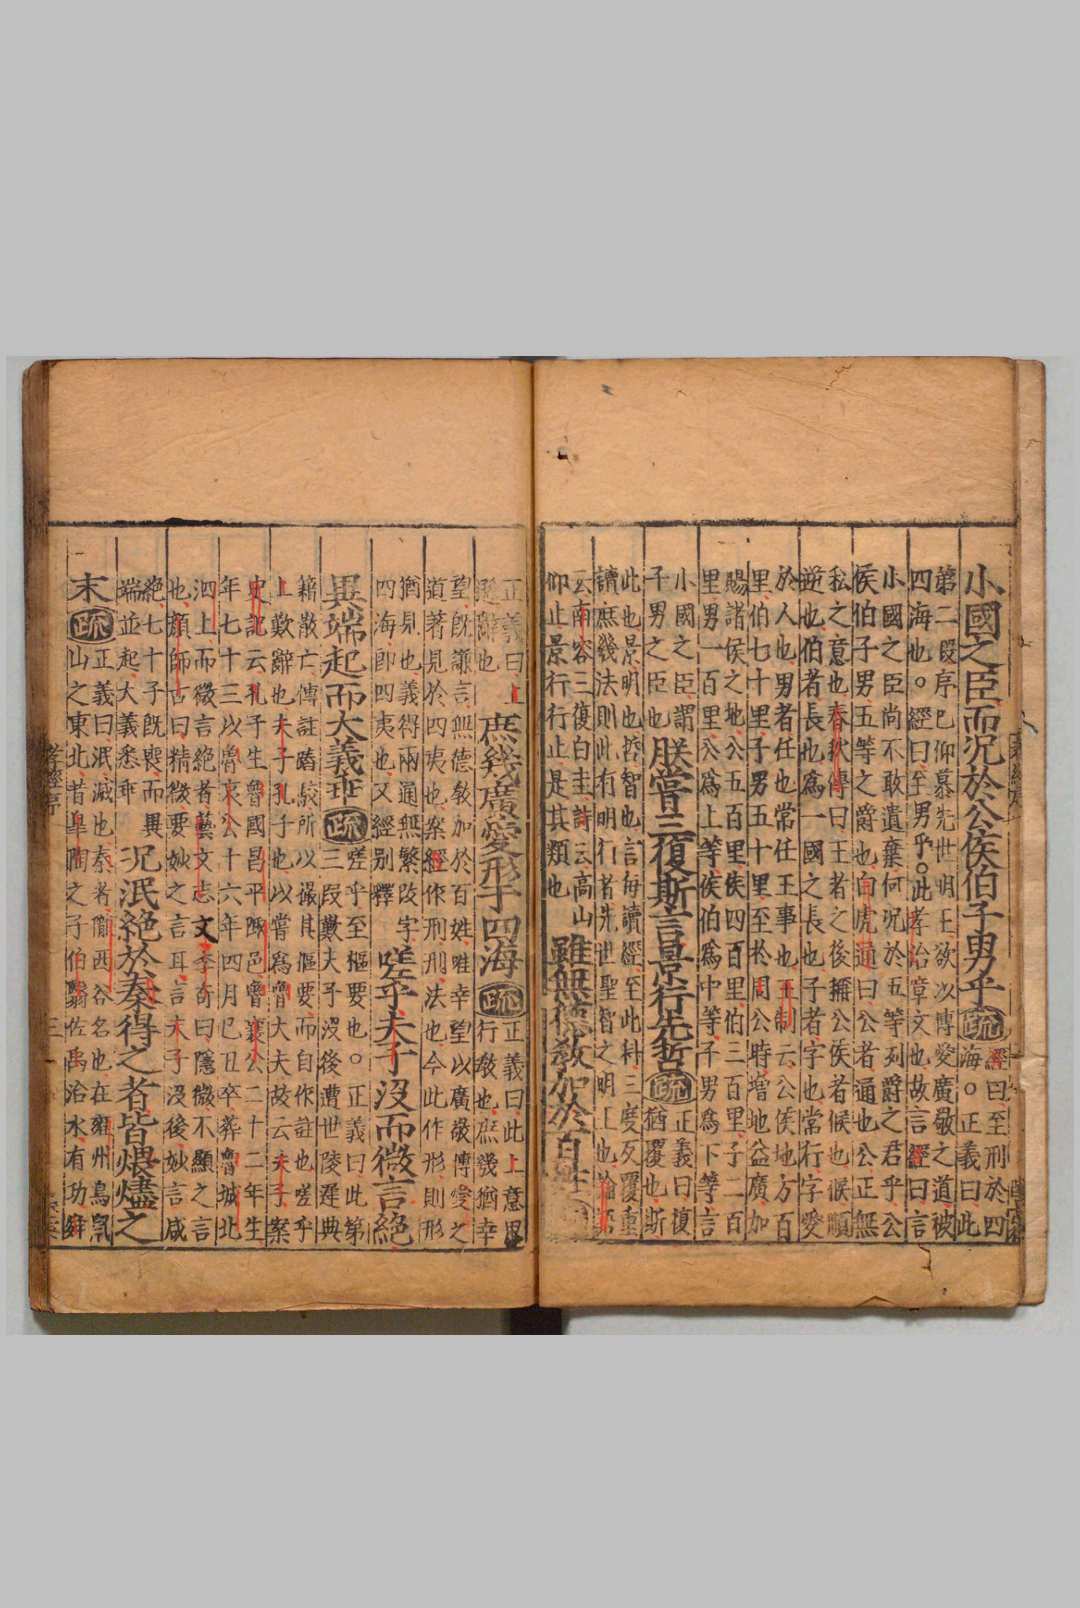 小國之臣而況於公侯伯子男乎疏經曰至刑於四
海○正義曰此
第二段序已仰慕先世明王欲以博愛廣敬之道被
四海也○經曰至男乎○此孝治章文也故言經曰言
小國之臣尚不敢遺棄何況於五等列爵之君乎公
侯伯子男五等之爵也白虎通曰公者通也公正無
私之意也春秋傳曰王者之後稱公侯者候也候順
逆也伯者長也為一國之長也子者字也常行字愛
於人也男者任也常任王事也王制云公侯地方百
里伯七十里子男五十里至於周公時增地益廣加
賜諸侯之地公五百里侯四百里伯三百里子二百
里男一百里公為上等侯伯為中等子男為下等言
小國之臣謂
子男之臣也
朕嘗三復斯言景行先哲疏正義曰復
猶覆也斯
此也景明也哲智也言每讀經至此科三度反覆重
讀庶幾法則此有明行者先世聖智之明王也論語
云南容三復白圭詩云高山
仰止景行行止是其類也
雖無德教加於百姓
正義曰上
遜辭也
庶幾廣愛形于四海疏正義曰此上意思
行教也庶幾猶幸
望既謙言無德教加於百姓唯幸望以廣敬博愛之
道著見於四夷也案經作刑刑法也今此作形則形
猶見也義得兩通無繁改字
四海即四夷也又經別釋
嗟乎夫子沒而微言絕
異端起而大義乖疏嗟乎至樞要也○正義曰此第
三段歎夫子沒後遭世陵遲典
籍散亡傳註踳駮所以撮其樞要而自作註也嗟乎
上歎辭也夫子孔子也以嘗為魯大夫故云夫子案
史記云孔子生魯國昌平陬邑魯襄公二十二年生
年七十三以魯哀公十六年四月已丑卒葬魯城北
泗上而微言絕者藝文志文李奇曰隱微不顯之言
也顏師古曰精微要妙之言耳言夫子沒後妙言咸
絕七十子既喪而異
端並起大義悉乖
況泯絕於秦得之者皆煨燼之
末疏正義曰泯滅也秦者隴西谷名也在雍州鳥鼠
山之東北昔皐陶之子伯翳佐禹治水有功
孝經序
三